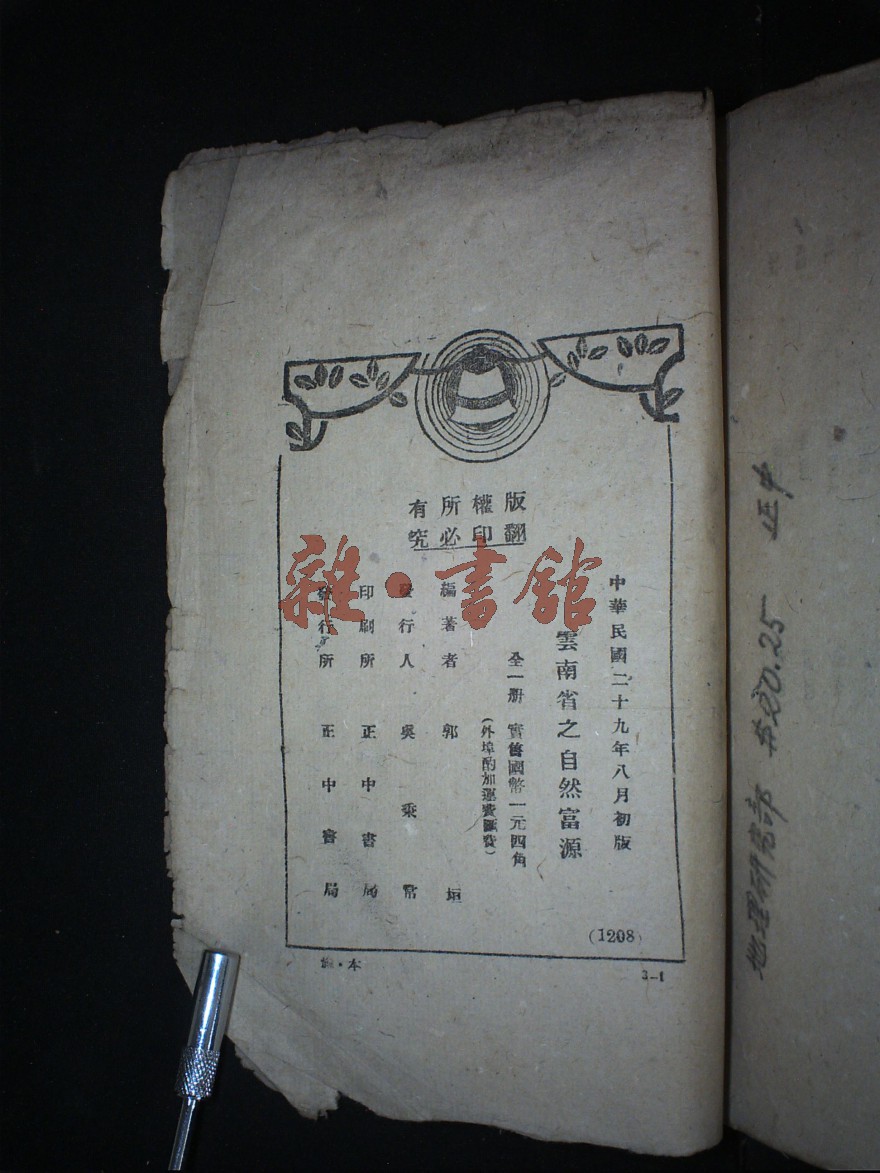 版權所有
翻印必究
中華民國二十九年八月初版
雲南省之自然富源
全一册 實售國幣一元四角
(外埠酌加運費匯費)
編著者 郭垣
發行人 吳秉常
印刷所 正中書局
發行所 正中書局
(1208)
3-1
本
雜·書館
正中
地理研究部